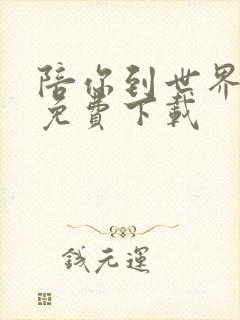 陪你到世界
免費下載
錢元運